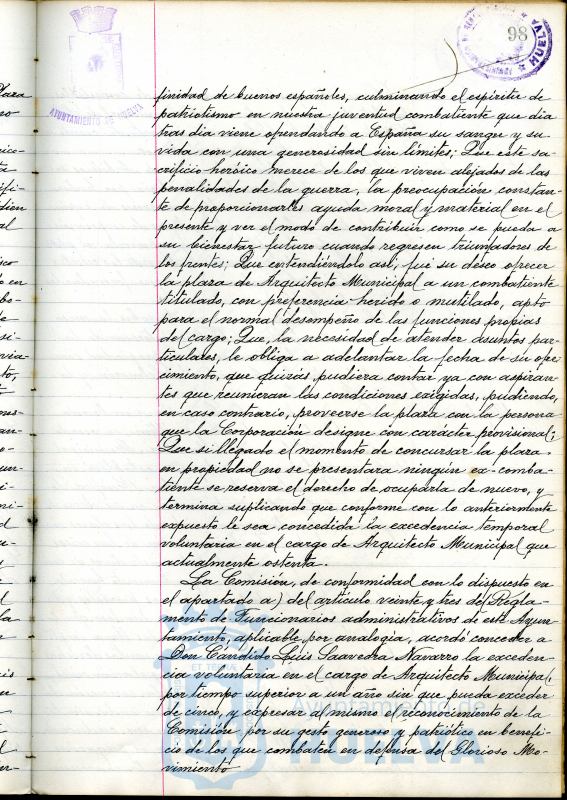 98
AYUNTAMIENTO DE HUELVA
HUELVA
finidad de buenos españoles, culminando el espíritu de
patriotismo en nuestra juventud combatiente que dia
tras dia viene ofrendando a España su sangre y su
vida con una generosidad sin límites; Que este sa-
crificio heróico merece de los que viven alejados de las
penalidades de la guerra, la preocupación constan-
te de proporcionarles ayuda moral y material en el
presente y ver el modo de contribuir como se pueda a
su bienestar futuro cuando regresen triunfadores de
los frentes; Que entendiéndolo así, fué su deseo ofrecer
la plaza de Arquitecto Municipal a un combatiente
titulado, con preferencia herido o mutilado, apto
para el normal desempeño de las funciones propias
del cargo; Que, la necesidad de atender asuntos par-
ticulares, le obliga a adelantar la fecha de su ofre-
cimiento, que quizás, pudiera contar ya con aspiran-
tes que reunieran las condiciones exigidas, pudiendo,
en caso contrario, proveerse la plaza con la persona
que la Corporación designe con carácter provisional;
Que si llegado el momento de concursar la plaza
en propiedad no se presentara ningún ex-comba-
tiente se reserva el derecho de ocuparla de nuevo, y
termina suplicando que conforme con lo anteriormente
expuesto le sea concedida la excedencia temporal
voluntaria en el cargo de Arquitecto Municipal que
actualmente ostenta.
La Comisión, de conformidad con lo dispuesto en
el apartado a) del artículo veinte y tres del Regla-
mento de Funcionarios administrativos de este Ayun-
tamiento, aplicable por analogia, acordó conceder a
Don Cándido Luis Saavedra Navarro la exceden-
cia voluntaria en el cargo de Arquitecto Municipal,
por tiempo superior a un año sin que pueda exceder
de cinco, y expresar al mismo el reconocimiento de la
Comisión por su gesto generoso y patriótico en benefi-
cio de los que combaten en defensa del Glorioso Mo-
vimiento
Ayuntamiento de
HUELVA